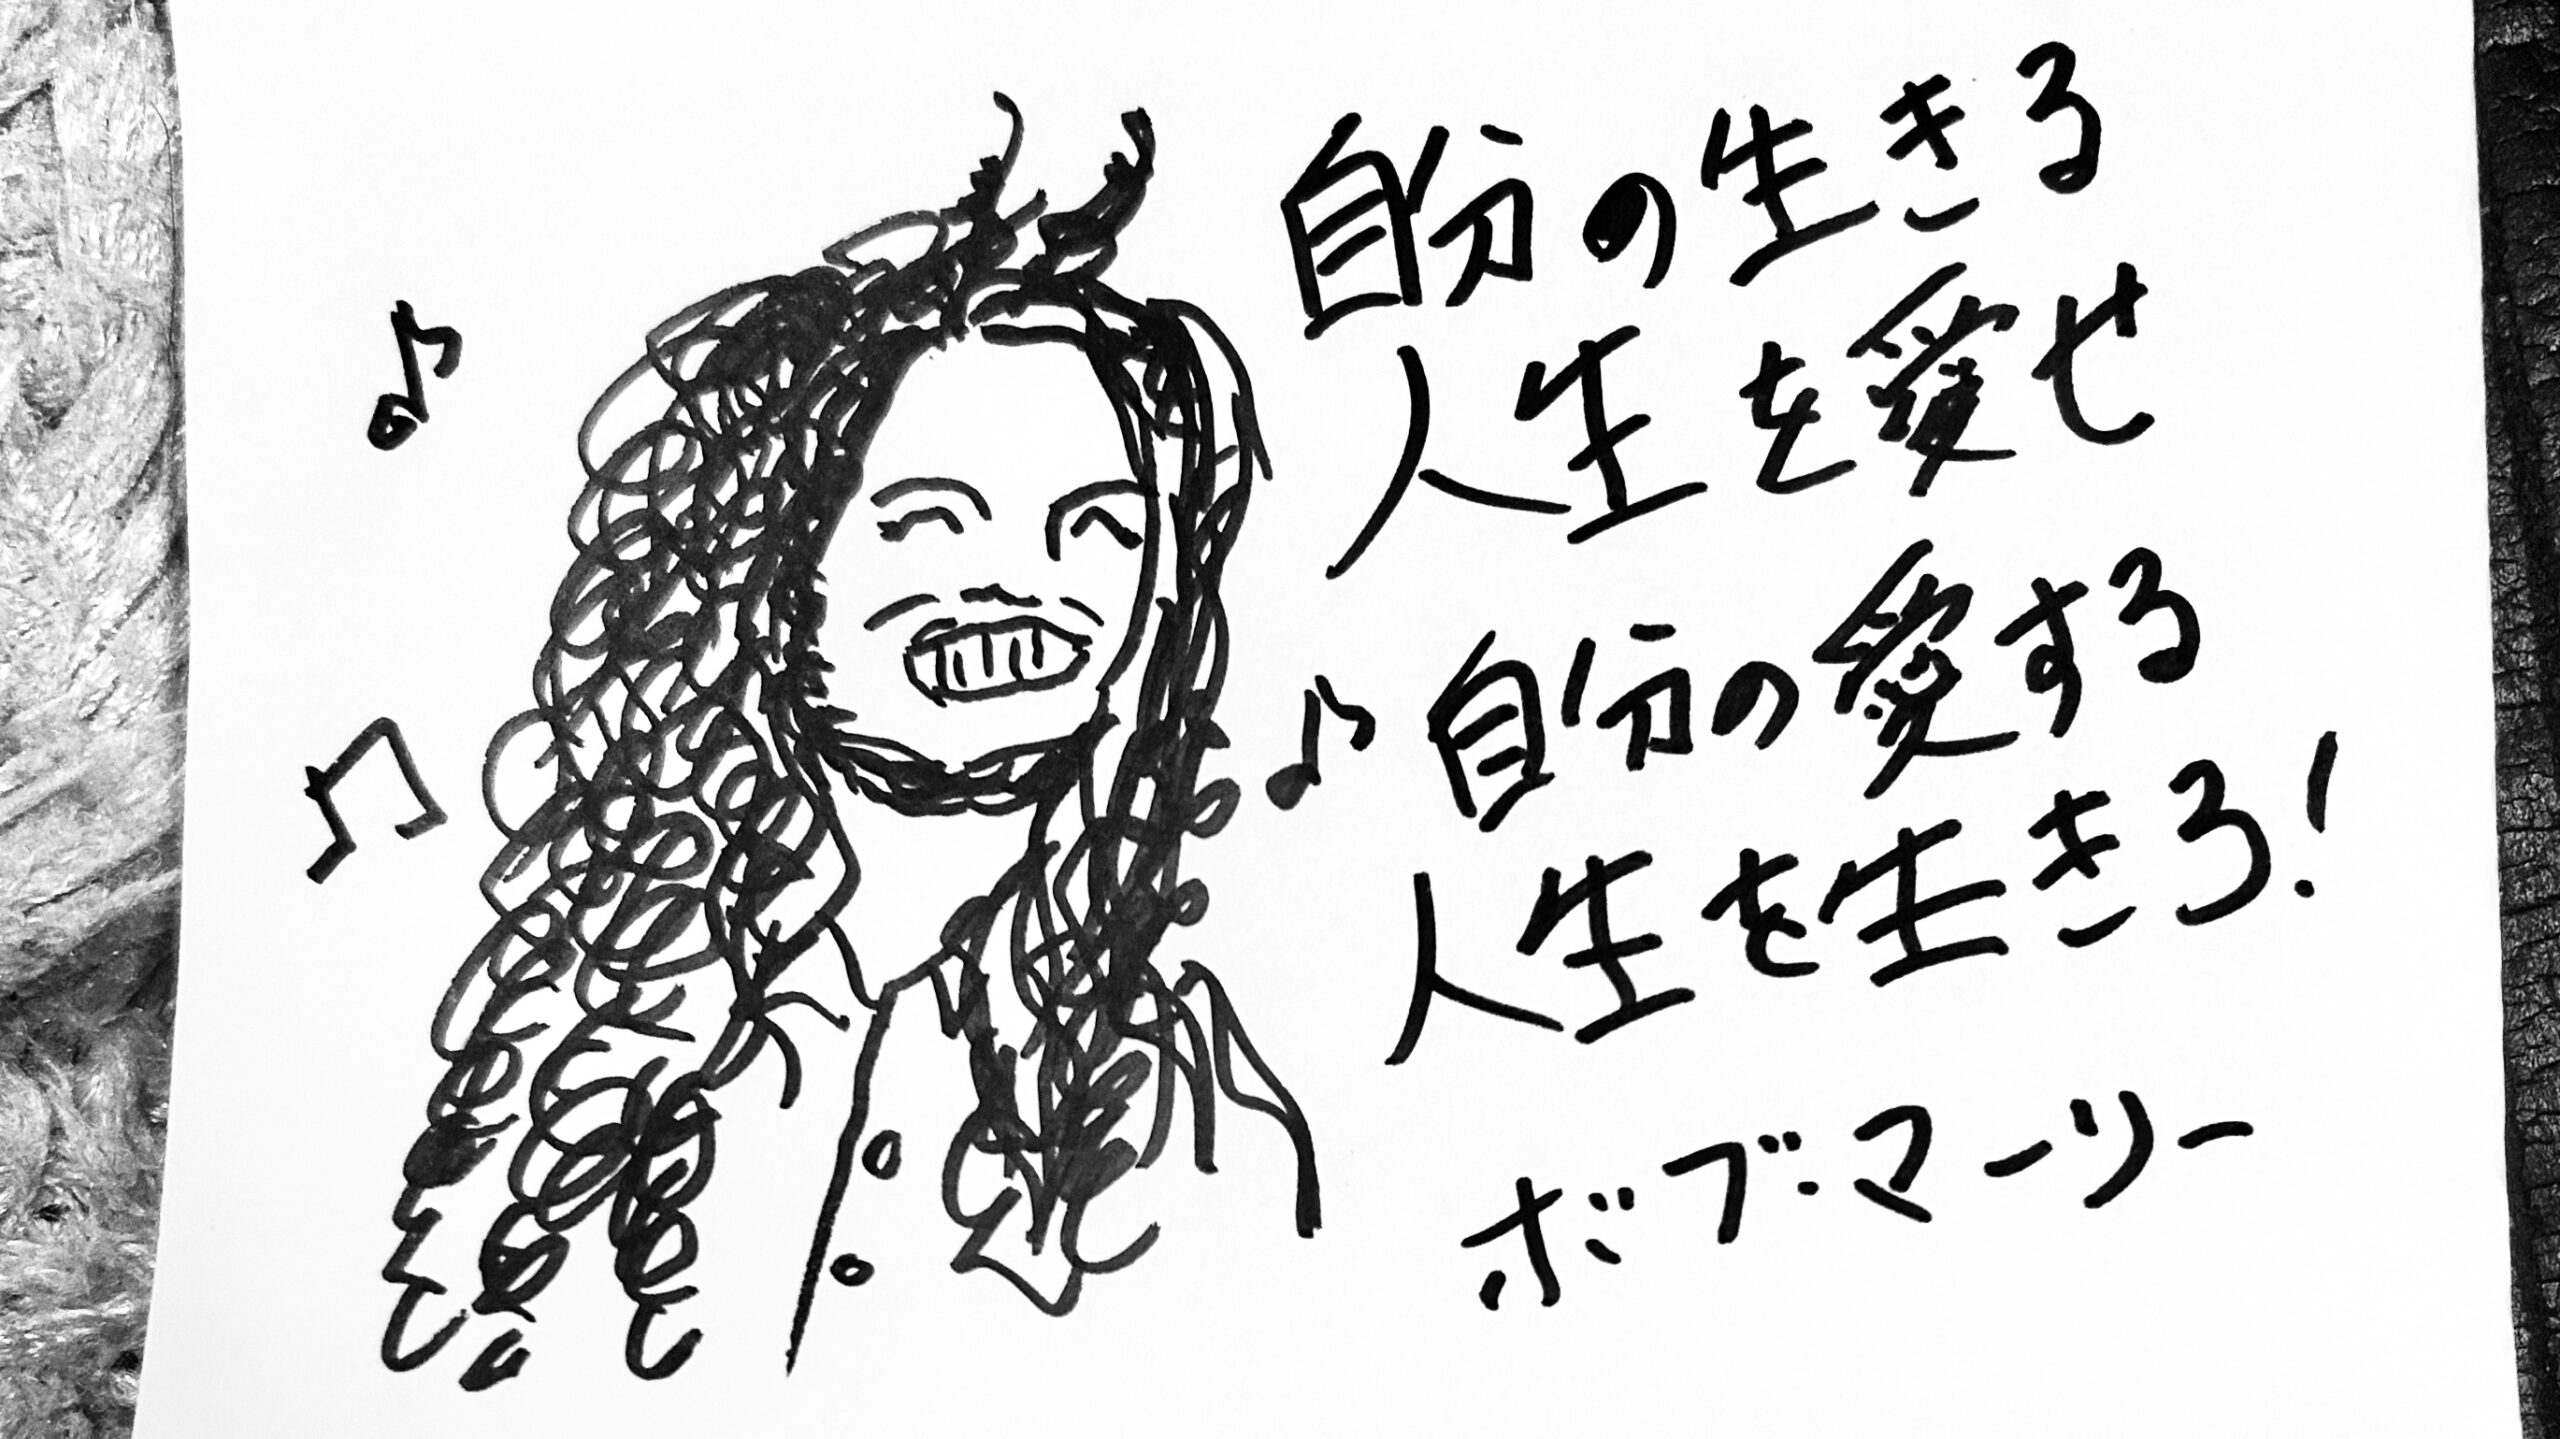 自分の生きる
人生を愛せ
自分の愛する
人生を生きろ!
ボブ・マーリー